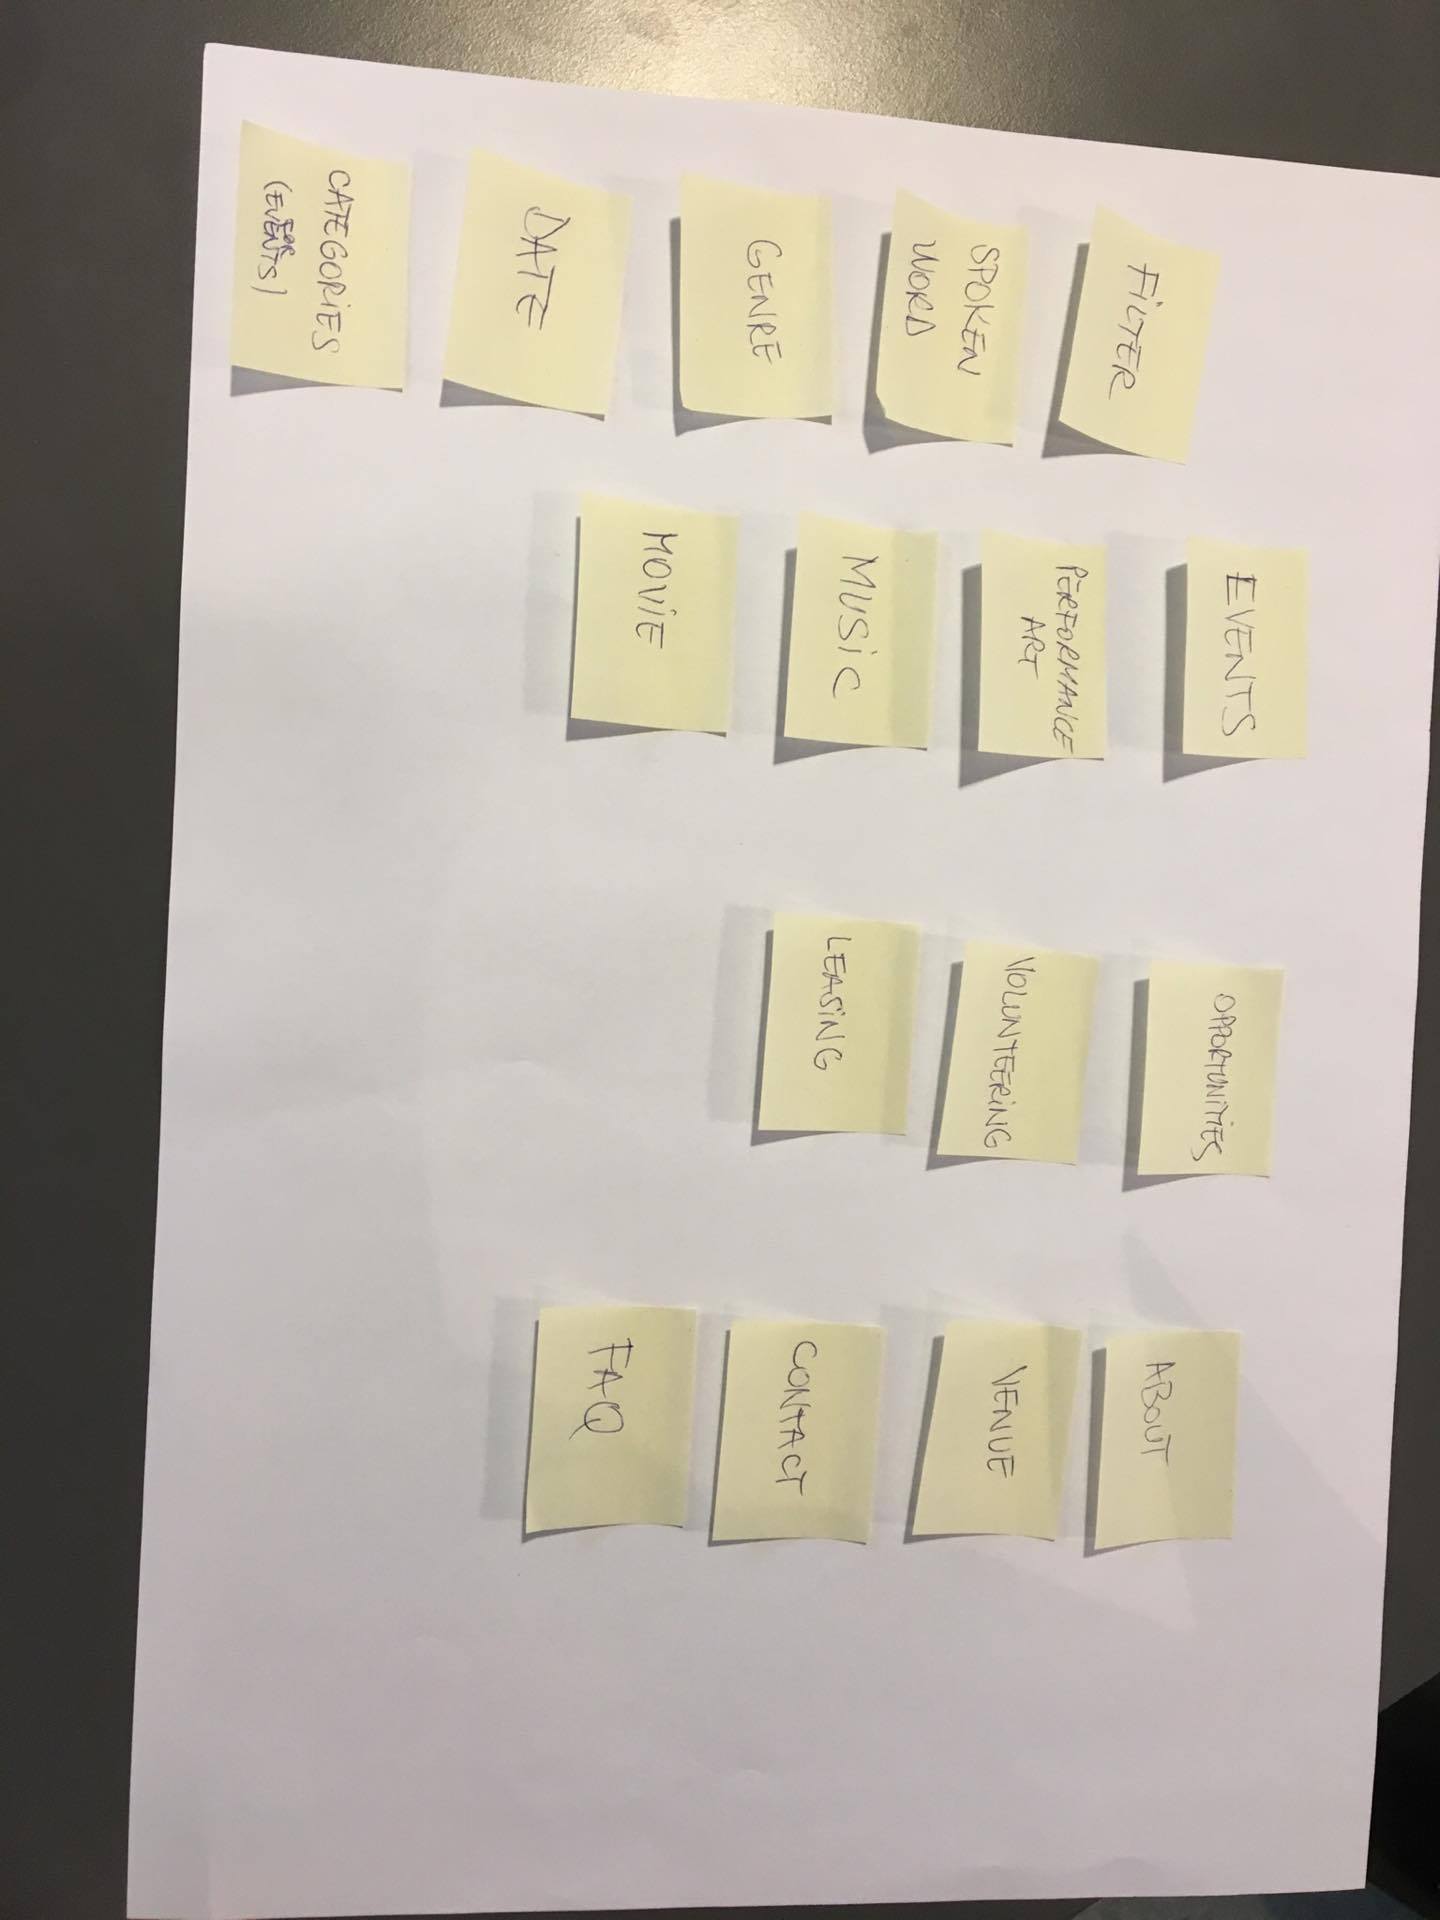 FILTER
SPOKEN
WORD
GENRE
DATE
CATEGORIES
FOR
(EVENTS)
EVENTS
PERFORMANCE
ART
MUSIC
MOVIE
OPPORTUNITIES
VOLUNTEERING
LEASING
ABOUT
VENUE
CONTACT
FAQ